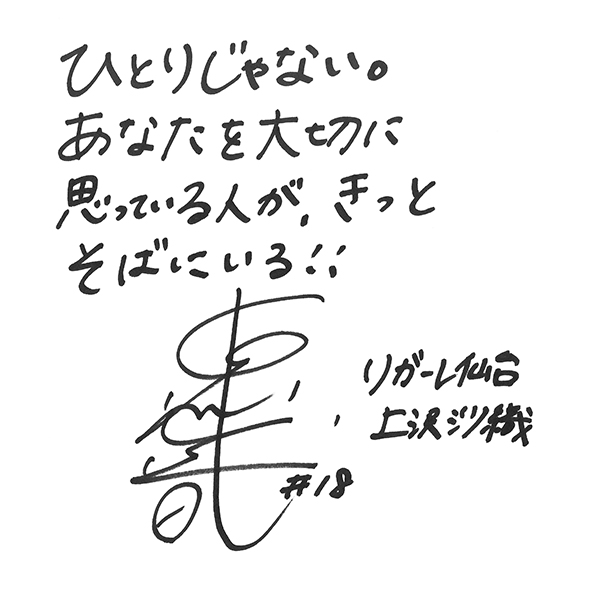 ひとりじゃない。
あなたを大切に
思っている人が、きっと
そばにいる!!
リガーレ仙台
#18